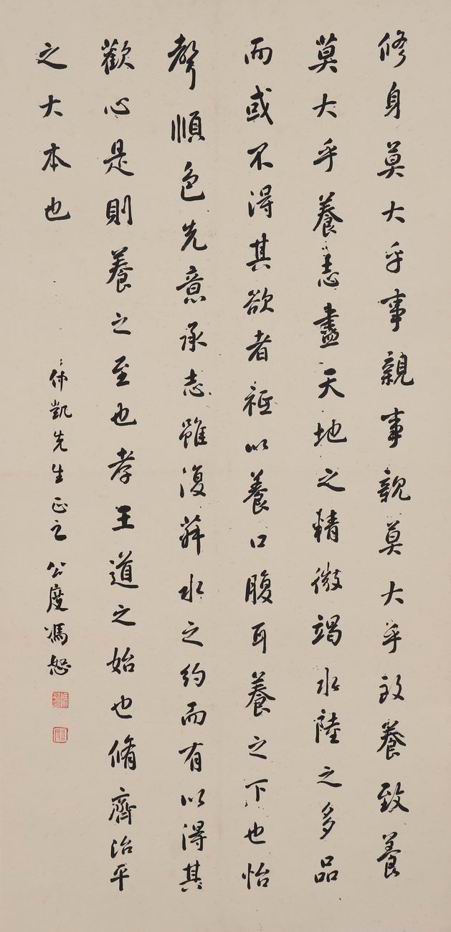 修身莫大乎事親事親莫大乎致養致養
莫大乎養志盡天地之精微竭水陸之多品
而或不得其欲者祗以養口腹耳養之下也怡
聲順色先意承志雖復菽水之約而有以得其
歡心是則養之至也孝王道之始也脩齊治平
之大本也
偉凱先生正之 公度馮恕